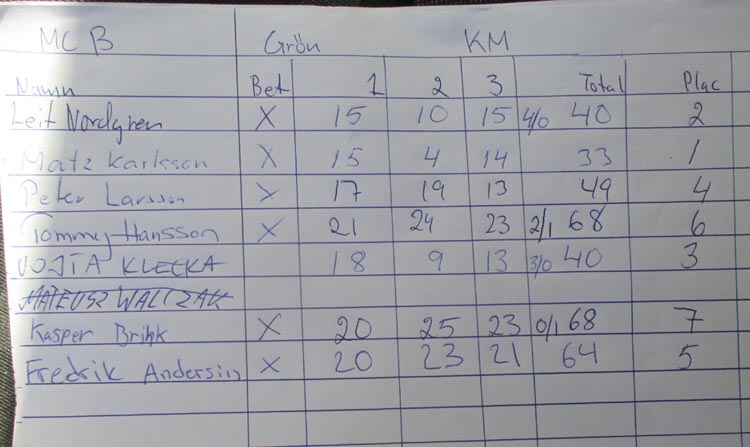 MC B Grön KM
Namn Bet 1 2 3 Total Plac
Leif Nordgren X 15 10 15 4/0 40 2
Matz Karlsson X 15 4 14 33 1
Peter Larsson X 17 19 13 49 4
Tommy Hansson X 21 24 23 2/1 68 6
VOJTA KLECKA 18 9 13 3/0 40 3
MATEUSZ WALCZAK
Kasper Brink X 20 25 23 0/1 68 7
Fredrik Andersin X 20 23 21 64 5